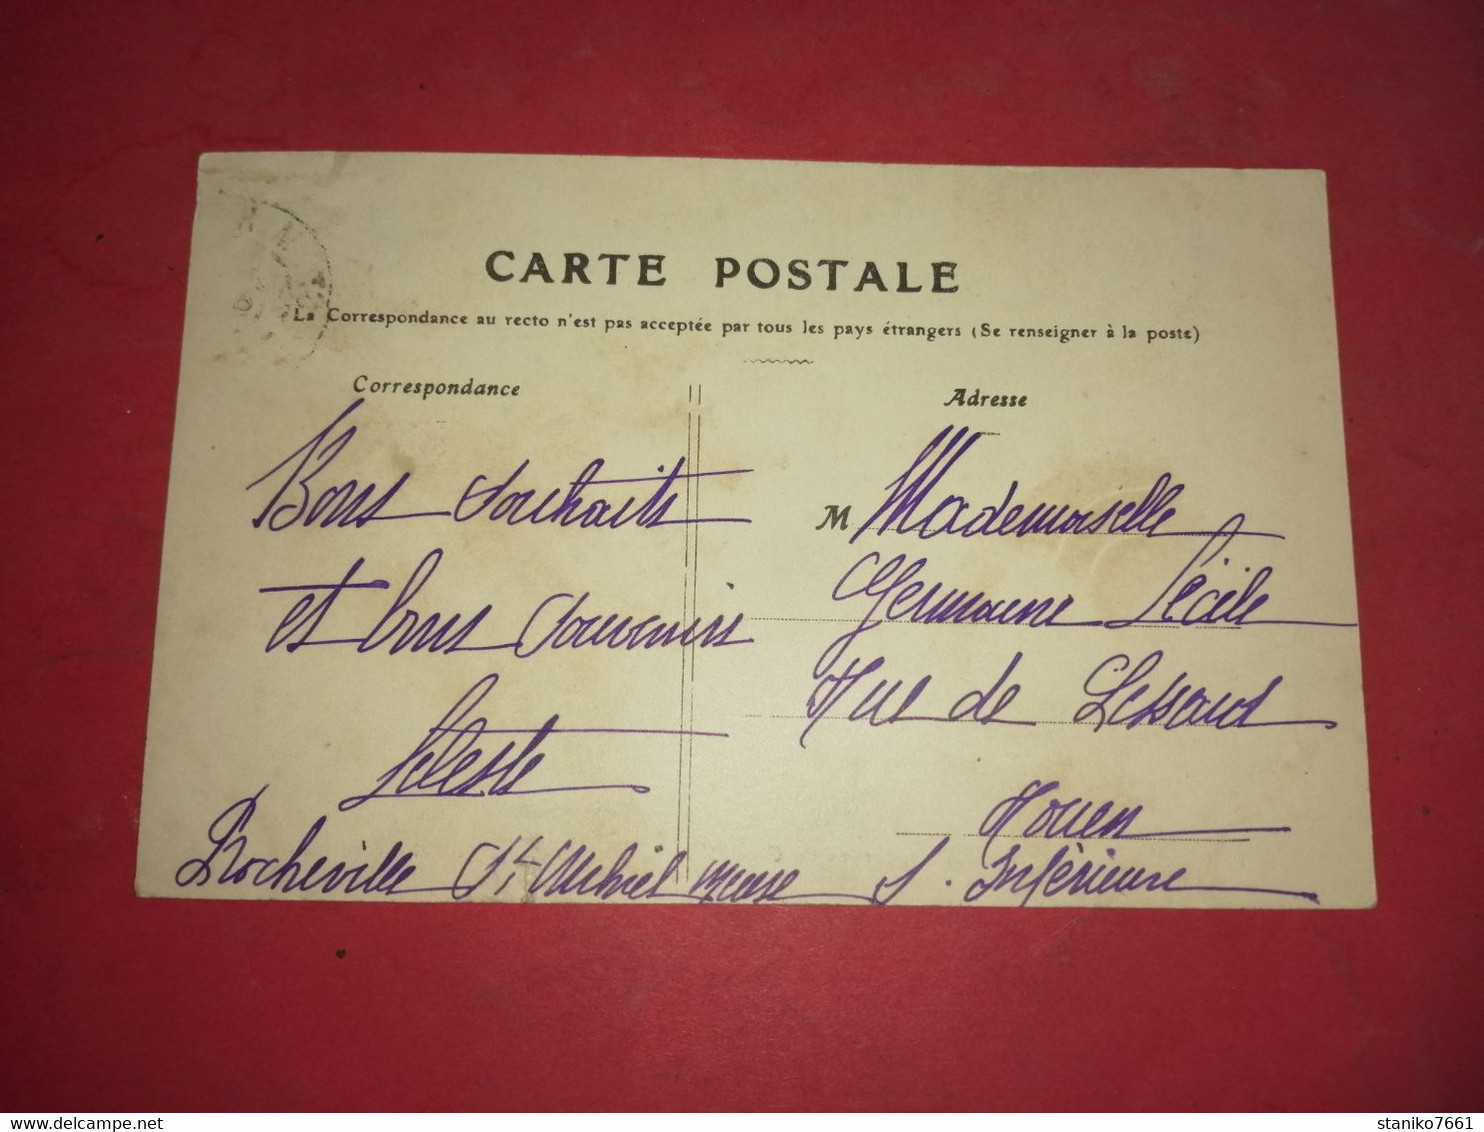 CARTE POSTALE
La Correspondance au recto n'est pas acceptée par tous les pays étrangers (Se renseigner à la poste)
Correspondance
Bons Souhaits
et bons Souvenirs
Céleste
Rocheville St Mihiel Meuse
Adresse
M Mademoiselle
Germaine Cécile
Rue de Lessard
Rouen
S. Inférieure
delcampe.net
staniko7661